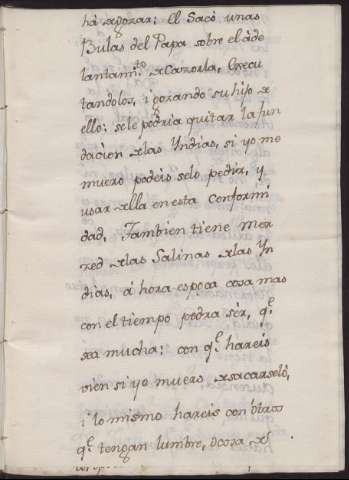 há de gozar: El Sacó unas
Bulas del Papa sobre el ade
lantamito de Cazorla, Execu
tandolos, i gozando su hijo de
ello: sele podria quitar la fun
dacion de las Yndias, si yo me
muero podeis selo pedir, y
usar de ella en esta Conformi
dad, Tambien tiene mer
zed de las Salinas de las Yn
dias, á hora es poca cosa mas
con el tiempo podra sér, q.e
sea mucha: con q.e hareis
vien si yo muero de sacarselo,
i lo mismo hareis con otros
q.e tengan lumbre, ó cosa de